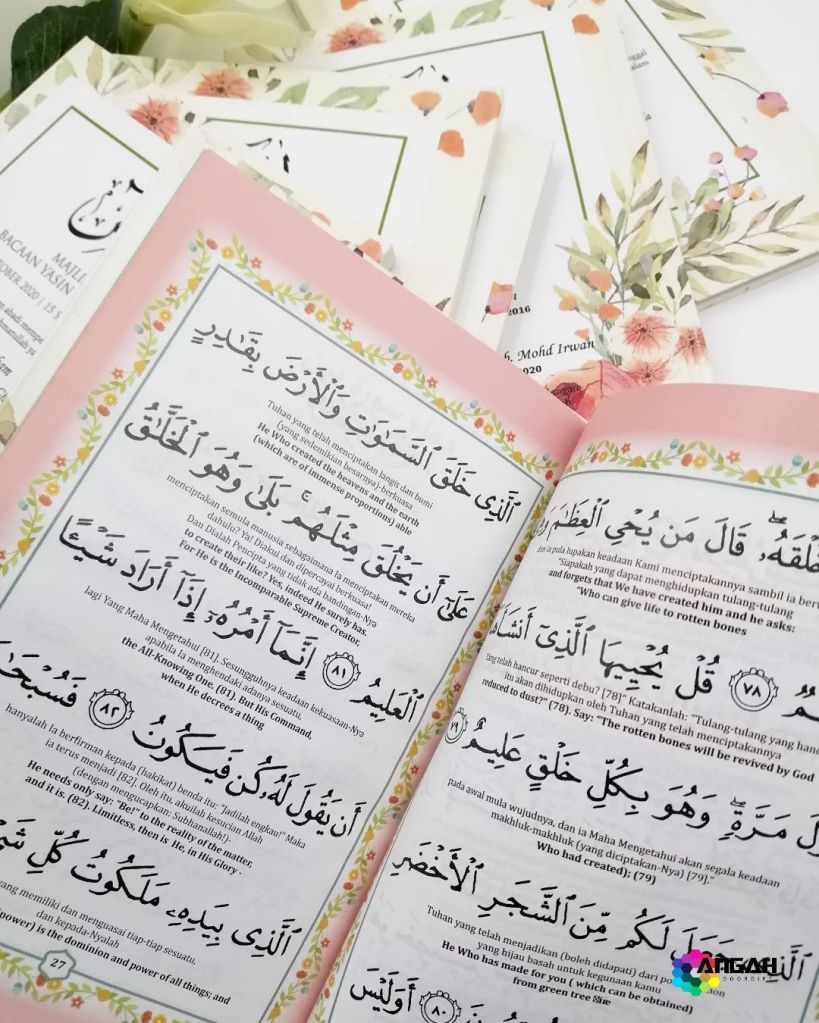 MAJLI
BACAAN YASIN
OBER 2020 | 15 S
2016
h. Mohd Irwan
2020
خَلْقَهُۥ ۖ قَالَ مَن يُحْىِ ٱلْعِظَٰمَ
dan ia pula lupakan keadaan Kami menciptakannya sambil ia ber
"Siapakah yang dapat menghidupkan tulang-tulang
and forgets that We have created him and he asks:
"Who can give life to rotten bones
٧٨ قُلْ يُحْيِيهَا ٱلَّذِىٓ
yang telah hancur seperti debu? [78]" Katakanlah: "Tulang-tulang yang hanc
itu akan dihidupkan oleh Tuhan yang telah menciptakannya
reduced to dust?" (78). Say: "The rotten bones will be revived by God
مَرَّةٍ ۖ وَهُوَ بِكُلِّ خَلْقٍ عَلِيمٌ ٧٩
pada awal mula wujudnya, dan ia Maha Mengetahui akan segala keadaan
makhluk-makhluk (yang diciptakan-Nya) [79]."
Who had created): (79)
لَكُم مِّنَ ٱلشَّجَرِ ٱلْأَخْضَرِ
Tuhan yang telah menjadikan (boleh didapati) dari
yang hijau basah untuk kegunaan kamu
He Who has made for you ( which can be obtained)
from green tree fire
٨٠ أَوَلَيْسَ
ٱلَّذِى خَلَقَ ٱلسَّمَٰوَٰتِ وَٱلْأَرْضَ بِقَٰدِرٍ
Tuhan yang telah menciptakan langit dan bumi
(yang sedemikian besarnya)-berkuasa
He Who created the heavens and the earth
(which are of immense proportions) able
عَلَىٰٓ أَن يَخْلُقَ مِثْلَهُم ۚ بَلَىٰ وَهُوَ ٱلْخَلَّٰقُ
menciptakan semula manusia sebagaimana Ia menciptakan mereka
dahulu? Ya! Diakui dan dipercayai berkuasa!
Dan Dialah Pencipta yang tidak ada bandingan-Nya
to create their like? Yes, indeed He surely has.
For He is the incomparable Supreme Creator,
ٱلْعَلِيمُ ٨١ إِنَّمَآ أَمْرُهُۥٓ إِذَآ أَرَادَ شَيْـًٔا
lagi Yang Maha Mengetahui [81]. Sesungguhnya keadaan kekuasaan-Nya
apabila Ia menghendaki adanya sesuatu,
the All-Knowing One. (81). But His Command,
when He decrees a thing
أَن يَقُولَ لَهُۥ كُن فَيَكُونُ ٨٢
hanyalah Ia berfirman kepada (hakikat) benda itu: "Jadilah engkau!" Maka
ia terus menjadi [82]. Oleh itu, akuilah kesucian Allah
(dengan mengucapkan: Subhanallah!)-
He needs only say: "Be!" to the reality of the matter,
and it is. (82). Limitless, then is He, in His Glory -
ٱلَّذِى بِيَدِهِۦ مَلَكُوتُ كُلِّ
yang memiliki dan menguasai tiap-tiap sesuatu,
dan kepada-Nyalah
(power) is the dominion and power of all things; and
27
ANGAH
DOORGIFT